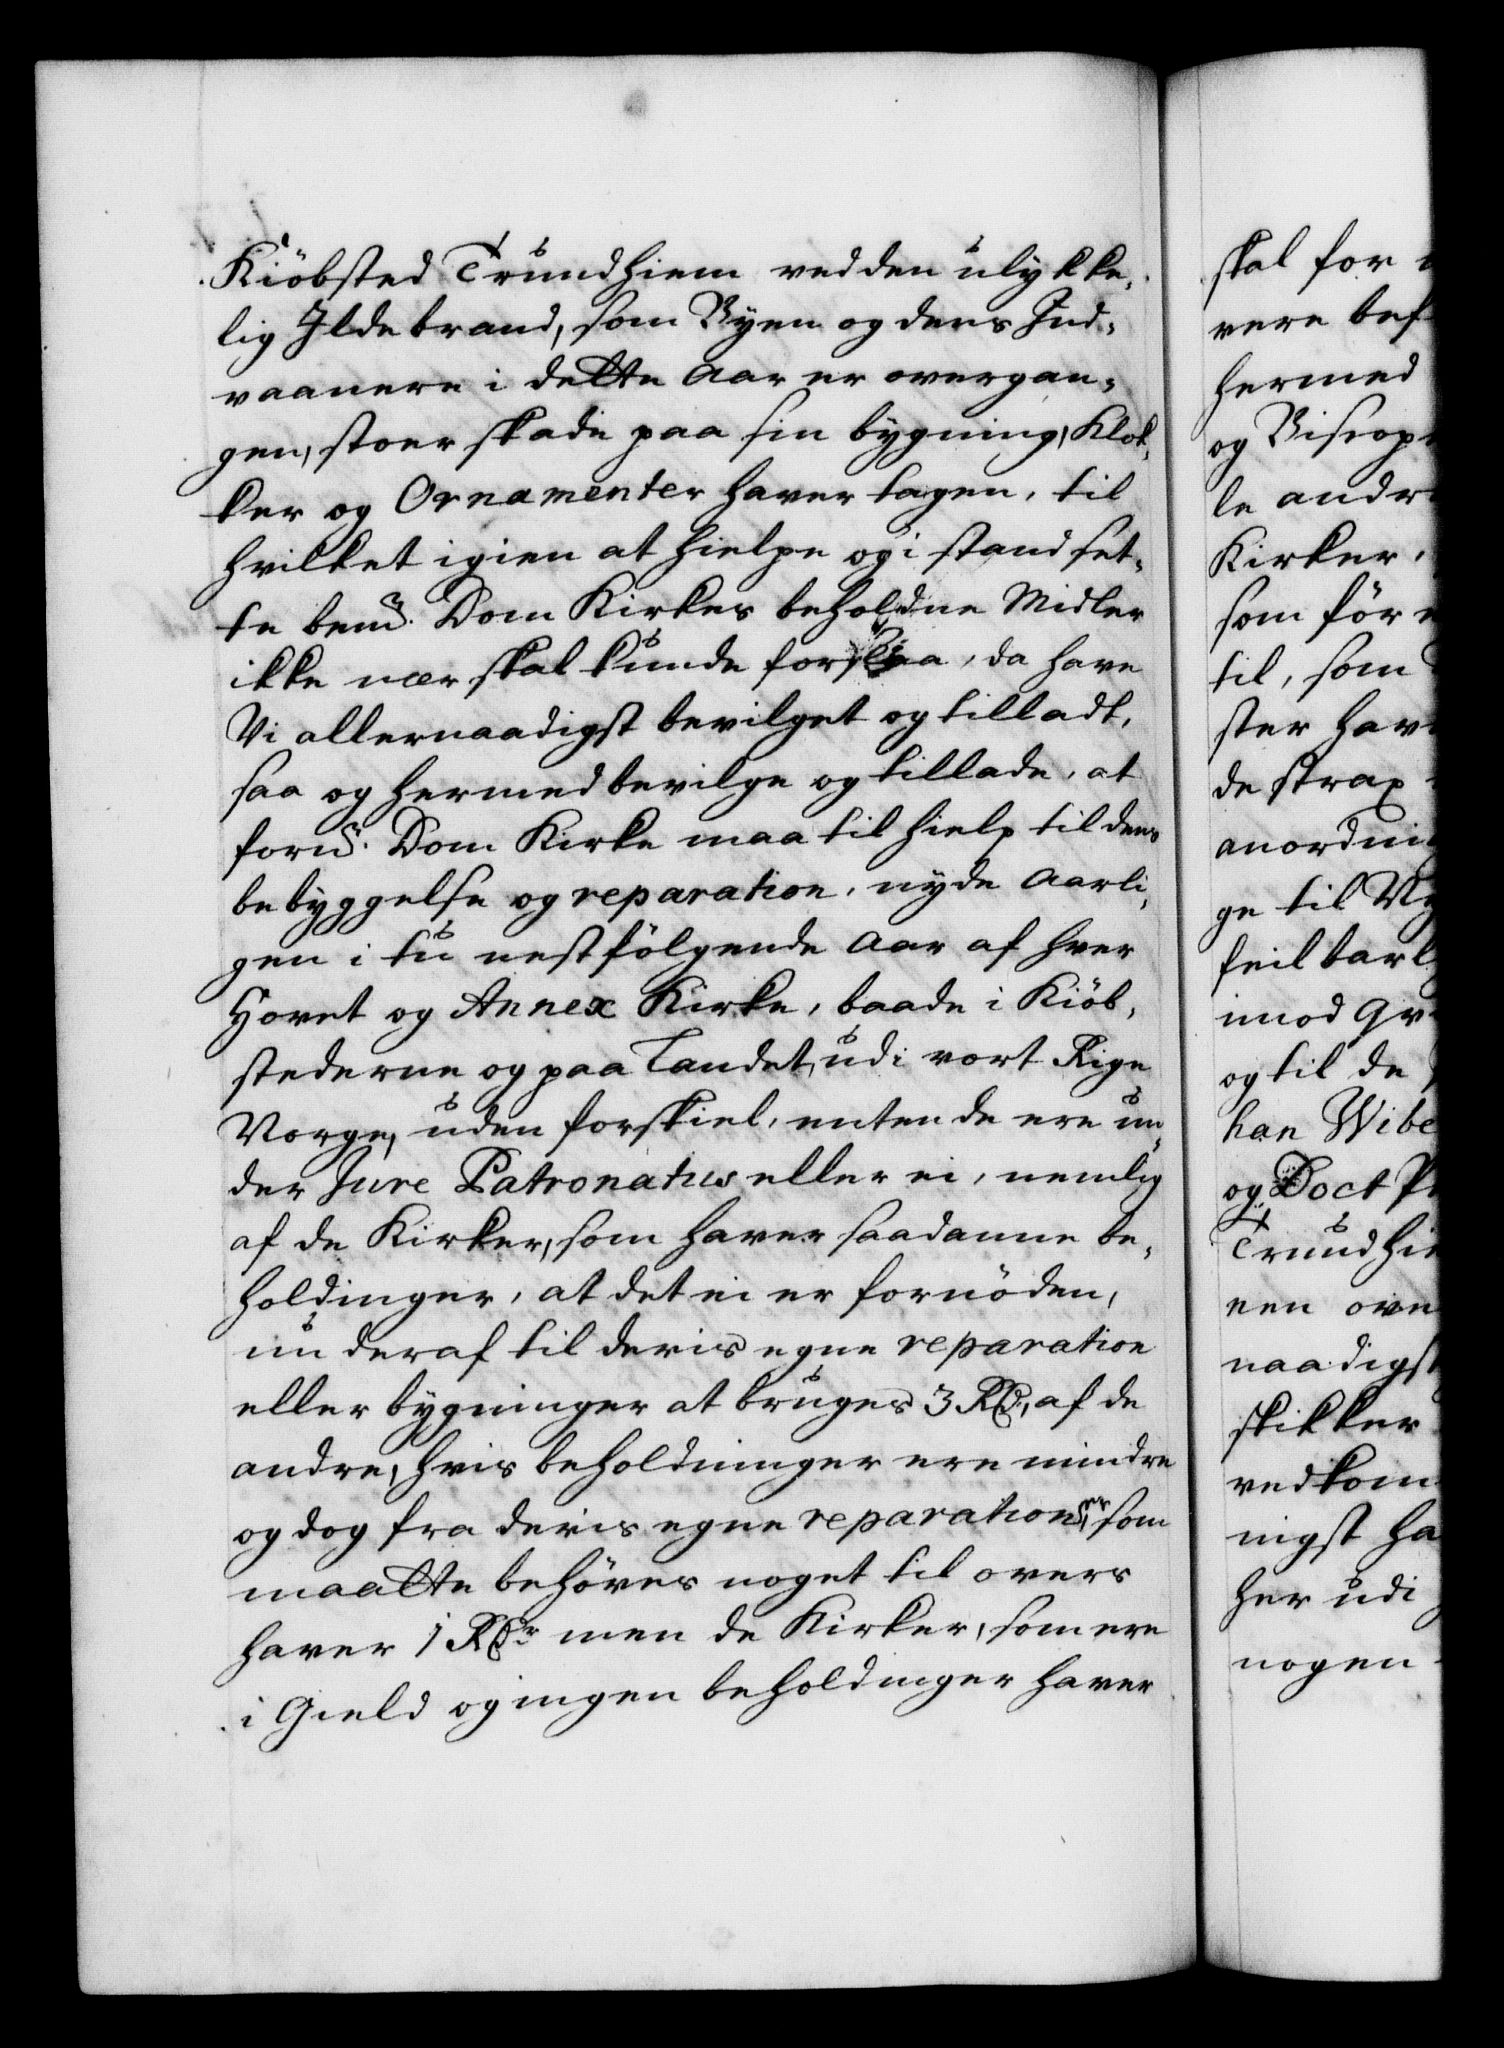 Kiöbsted Trundhiem ved den ulykke,
lig Ildebrand, som Byen og dens Ind,
vaanere i dette Aar er overgan,
gen, stoer skade paa sin bygning, Klok,
ker og Ornamenter haver tagen, til
hvilket igien at hielpe og i stand set,
te bemt. Dom Kirkes beholdne Midler
ikke nær skal kunde forslaa, da have
Vi allernaadigst bevilget og tilladt,
saa og hermed bevilge og tillade, at
fornt. Dom Kirke maa til hielp til dens
bebyggelse og reparation, nyde aarli,
gen i tu nestfölgende Aar af hver
Hovet og Annex Kirke, baade i Kiöb,
stederne og paa Landet, udi vort Rige
Norge, uden forskiel, enten de ere un,
der Jure Patronatus eller ei, nemlig
af de Kirker, som haver saadanne be,
holdinger, at det ei er fornöden,
nu deraf til deris egne reparation
eller bygninger at bruges 3 Rd., af de
andre, hvis beholdninger ere mindre
og dog fra deris egne reparationer, som
maatte behöves noget til overs
haver 1 Rdr men de Kirker, som ere
i Gield og ingen beholdinger haver
skal for
vere bef
hermed
og Biscop
le andr
Kirker,
som för
til, som
ster hav
de strax
anordni
ge til Ny
feilbarl
imod Gr
og til de
han Wibe
og Doct P
Trundhie
nen ove
naadigst
skikker
vedkom
nigst ha
her udi
nogen